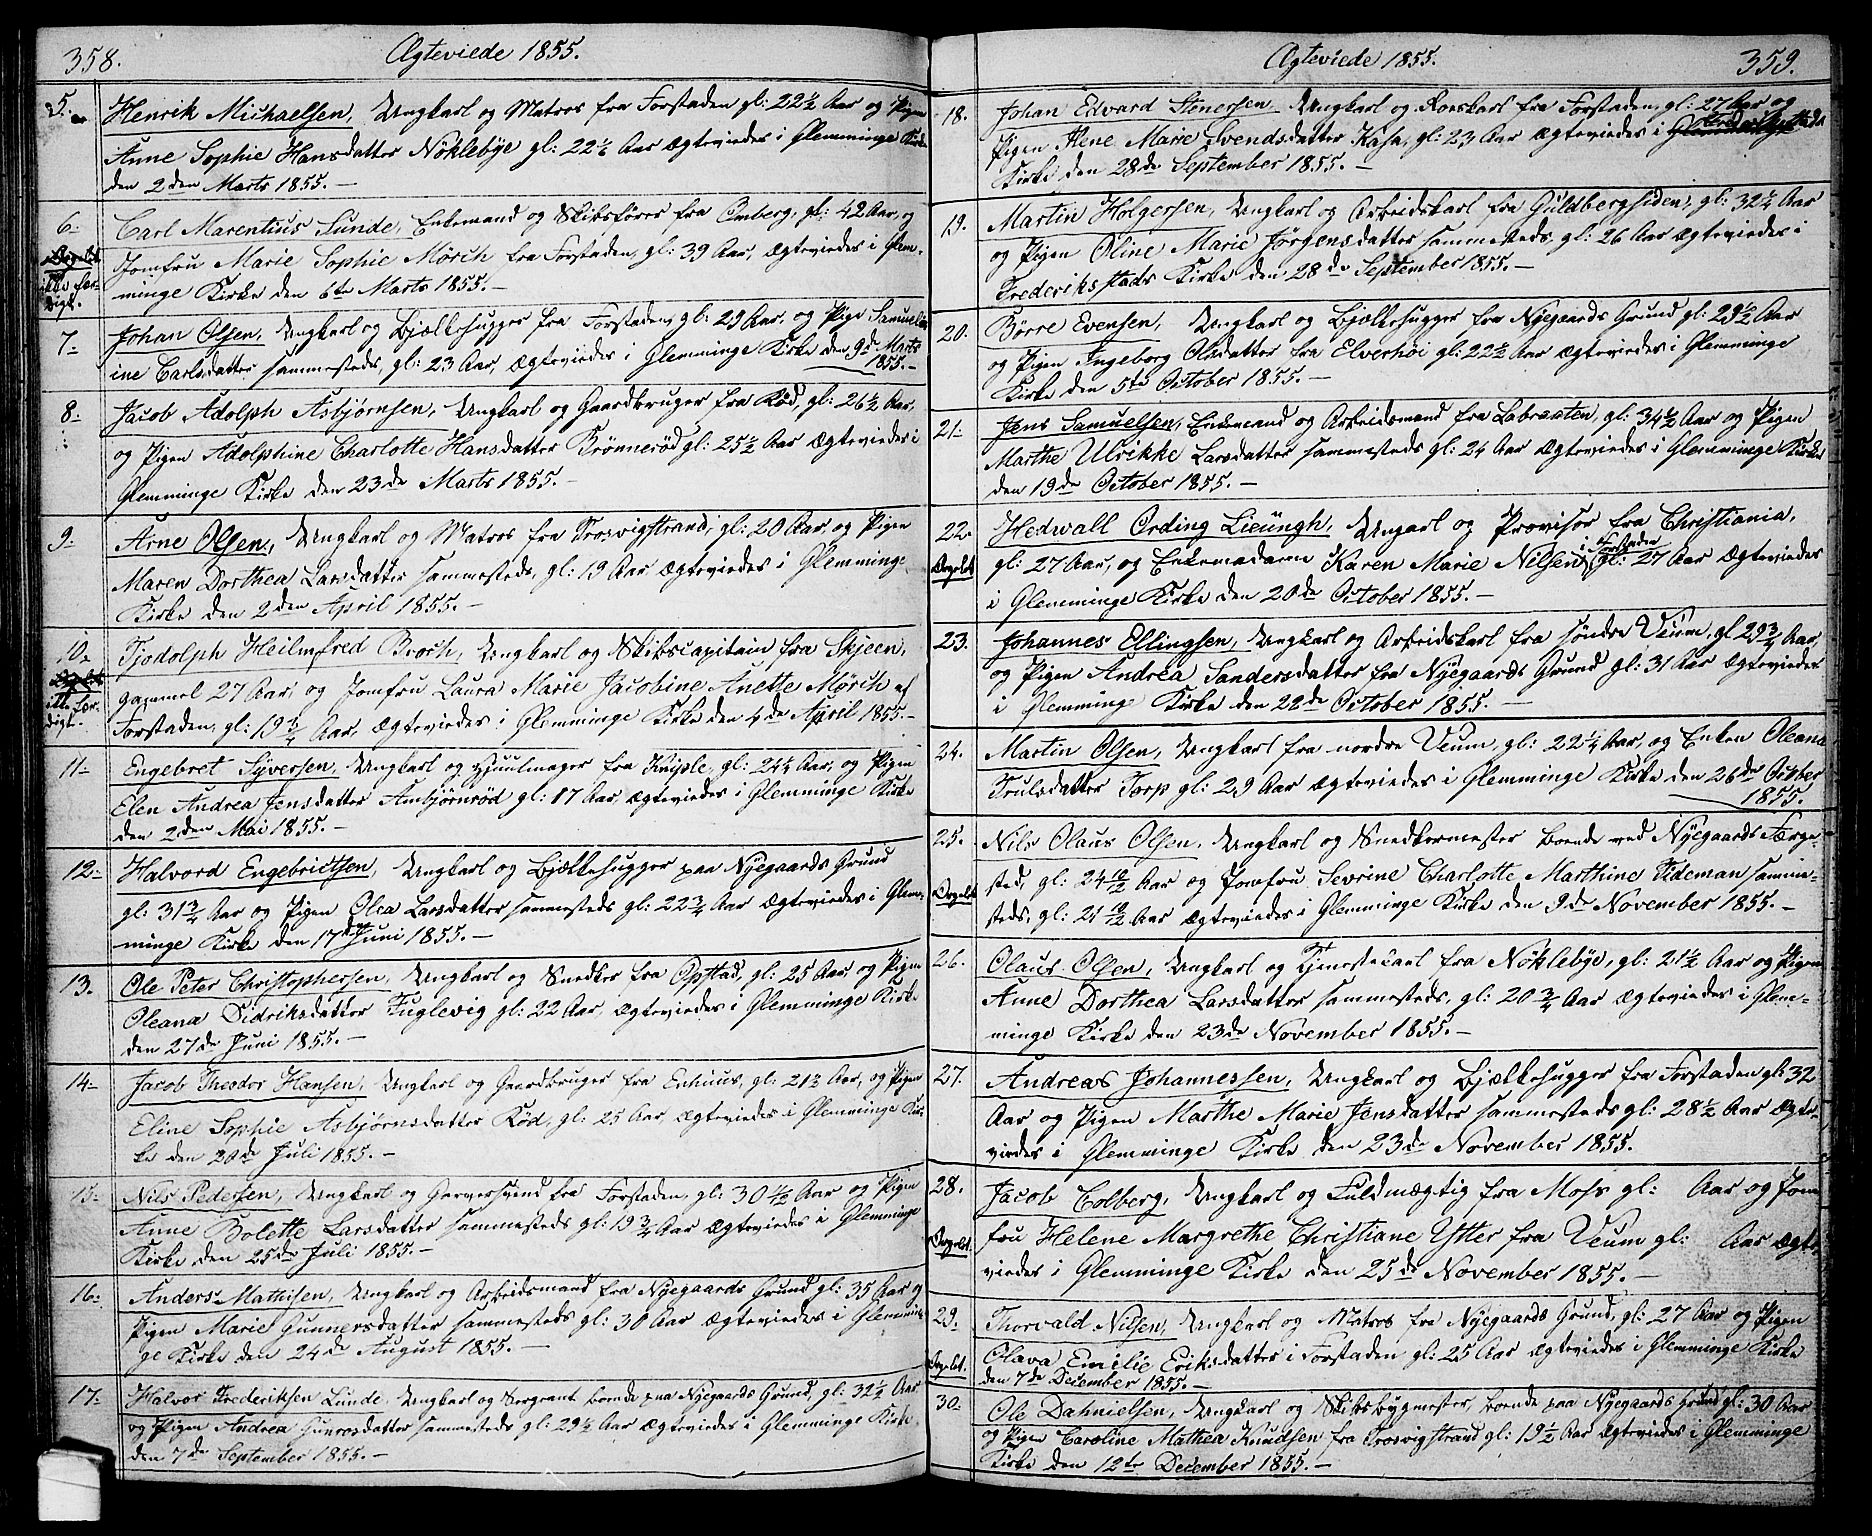 358.
Ægteviede 1855.
5.
Henrik Michaelsen, Ungkarl og Matros fra Forstaden gl: 22½ Aar og Pigen
Anne Sophie Hansdatter Nöklebye gl: 22½ Aar Ægteviedes i Glemminge Kirke
den 2den Marts 1855.—
6-
Carl Marentius Lunde, Enkemand og Skibsfører fra Omberg, gl: 42 Aar, og
Jomfru Marie Sophie Mörch fra Forstaden, gl: 39 Aar, Ægteviedes i Glem-
minge Kirke den 6te Marts 1855.—
7-
Johan Olsen, Ungkarl og Bjælkehugger fra Forstaden, gl: 29 Aar, og Pige Samuel-
ine Carlsdatter sammesteds, gl: 23 Aar, Ægteviedes i Glemminge Kirke den 9de Marts
1855.—
8-
Jacob Adolph Asbjørnsen, Ungkarl og Gaardbruger fra Röd, gl: 26½ Aar,
og Pigen Adolphine Charlotte Hansdatter Brønnerød gl: 25½ Aar Ægteviedes i
Glemminge Kirke den 23de Marts 1855.—
9-
Arne Olsen, Ungkarl og Matros fra Trosvigstrand, gl: 20 Aar, og Pigen
Maren Dorthea Larsdatter sammesteds, gl: 19 Aar Ægteviedes i Glemminge
Kirke den 2den April 1855.—
10-
Tjodolph Heilmfred Broch, Ungkarl og Skibscapitain fra Skjeen,
gammel 27 Aar, og Jomfru Laura Marie Jacobine Anette Mörch af
Forstaden, gl: 19¾ Aar, Ægteviedes i Glemminge Kirke den 4de April 1855.—
11-
Engebret Syversen, Ungkarl og Hjuulmager fra Kniple, gl: 24¼ Aar, og Pigen
Elen Andrea Jensdatter Ambjörnröd gl: 17 Aar Ægteviedes i Glemminge Kirke
den 2den Mai 1855.—
12-
Halvord Engebrictsen, Ungkarl og Bjælkehugger paa Nyegaards Grund
gl: 31¾ Aar og Pigen Olea Larsdatter sammesteds gl: 22¾ Aar Ægteviedes i Glem-
minge Kirke den 17de Juni 1855.—
13.
Ole Peter Christophersen, Ungkarl og Snedker fra Opstad, gl: 25 Aar og Pigen
Oleana Didriksdatter Fuglevig gl: 22 Aar, Ægteviedes i Glemminge Kirke
den 27de Juni 1855.—
14-
Jacob Theodor Hansen, Ungkarl og Gaardbruger fra Enhuus, gl: 21½ Aar, og Pigen
Eline Sophie Asbjörnsdatter Röd, gl: 25 Aar, Ægteviedes i Glemminge Kir-
ke den 20de Juli 1855.—
15-
Nils Pedersen, Ungkarl og Garversvend fra Forstaden, gl: 30½ Aar og Pigen
Anne Bolette Larsdatter sammesteds gl: 19¾ Aar Ægteviedes i Glemminge
Kirke den 25de Juli 1855.—
16-
Anders Mathisen, Ungkarl og Arbeidsmand fra Nyegaards Grund gl: 35 Aar og
Pigen Marie Gunnersdatter sammesteds gl: 30 Aar Ægteviedes i Glemmin-
ge Kirke den 24de August 1855.—
17-
Halvor Frederiksen Lunde, Ungkarl og Sergeant boende paa Nyegaards Grund, gl: 32½ Aar
og Pigen Andrea Gunrosdatter sammesteds gl: 29½ Aar Ægteviedes i Glemminge Kirke
den 7de September 1855.—
Ægteviede 1855.
359.
18.
Johan Edvard Stenersen Ungkarl og Rorskarl fra Forstaden, gl: 27 Aar og
Pigen Alene Marie Svendsdatter Kasa, gl: 23 Aar Ægteviedes i
Kirke den 28de September 1855.—
19.
Martin Holgersen, Ungkarl og Arbeidskarl fra Guldbergsiden, gl: 32¼ Aar
og Pigen Oline Marie Jörgensdatter sammesteds, gl: 26 Aar Ægteviedes i
Frederiksstads Kirke den 28de September 1855.—
20.
Börre Evensen, Ungkarl og Bjælkehugger fra Nyegaards Grund gl: 29½ Aar
og Pigen Ingeborg Olsdatter fra Elverhöi gl: 22½ Aar Ægteviedes i Glemminge
Kirke den 5te October 1855.—
21-
Jens Samuelsen, Enkemand og Arbeidsmand fra Labraaten, gl: 34½ Aar og Pigen
Marthe Ulrikke Larsdatter sammesteds gl: 24 Aar Ægteviedes i Glemminge Kirke
den 19de October 1855.—
22-
Hedwall Ording Lieungh, Ungarl og Provisor fra Christiania,
i Forstaden
gl: 27 Aar, og Enkemadame Karen Marie Nilsen, gl: 27 Aar Ægteviedes
i Glemminge Kirke den 20de October 1855.—
23.
Johannes Ellingsen, Ungkarl og Arbeidskarl fra søndre Veum, gl 29¾ Aar,
og Pigen Andrea Sandersdatter fra Nyegaards Grund gl: 31 Aar Ægteviedes
i Glemminge Kirke den 22de October 1855.—
24.
Martin Olsen, Ungkarl fra nordre Veum, gl: 22¼ Aar, og Enken Oleana
Trulsdatter Torp gl: 29 Aar Ægteviedes i Glemminge Kirke den 26de October
1855.
25.
Nils Olaus Olsen, Ungkarl og Snedkermester boende ved Nyegaards Færge-
sted, gl: 24 10/12 Aar og Jomfru Severine Charlotte Marthine Tideman samme-
steds, gl: 21 10/12 Aar Ægteviedes i Glemminge Kirke den 9de November 1855.—
26.
Olaus Olsen, Ungkarl og Tjenestekarl fra Nöklebye, gl: 21½ Aar og Pigen
Anne Dorthea Larsdatter sammesteds, gl: 20¾ Aar Ægteviedes i Glem-
minge Kirke den 23de November 1855.—
27.
Andreas Johannessen, Ungkarl og Bjælkehugger fra Forstaden gl: 32
Aar og Pigen Marthe Marie Jensdatter sammesteds gl: 28½ Aar Ægte-
viedes i Glemminge Kirke den 23de November 1855.
28.
Jacob Colberg, Ungkarl og Fuldmægtig fra Moss gl: Aar og Jom
fru Helene Margrethe Christiane Ytter fra Veum gl: Aar Ægte-
viedes i Glemminge Kirke den 25de November 1855.—
29.
Thorvald Nilsen, Ungkarl og Matros fra Nyegaards Grund, gl: 27 Aar og Pigen
Olava Emilie Eriksdatter i Forstaden gl: 25 Aar Ægteviedes i Glemminge Kirke
den 7de December 1855.—
30.
Ole Dahnielsen, Ungkarl og Skibsbygmester, boende paa Nyegaards Grund gl: 30 Aar
og Pigen Caroline Mathea Knudsen fra Trosvigstrand gl: 19½ Aar Ægteviedes i Glemminge
Kirke den 12te December 1855.—